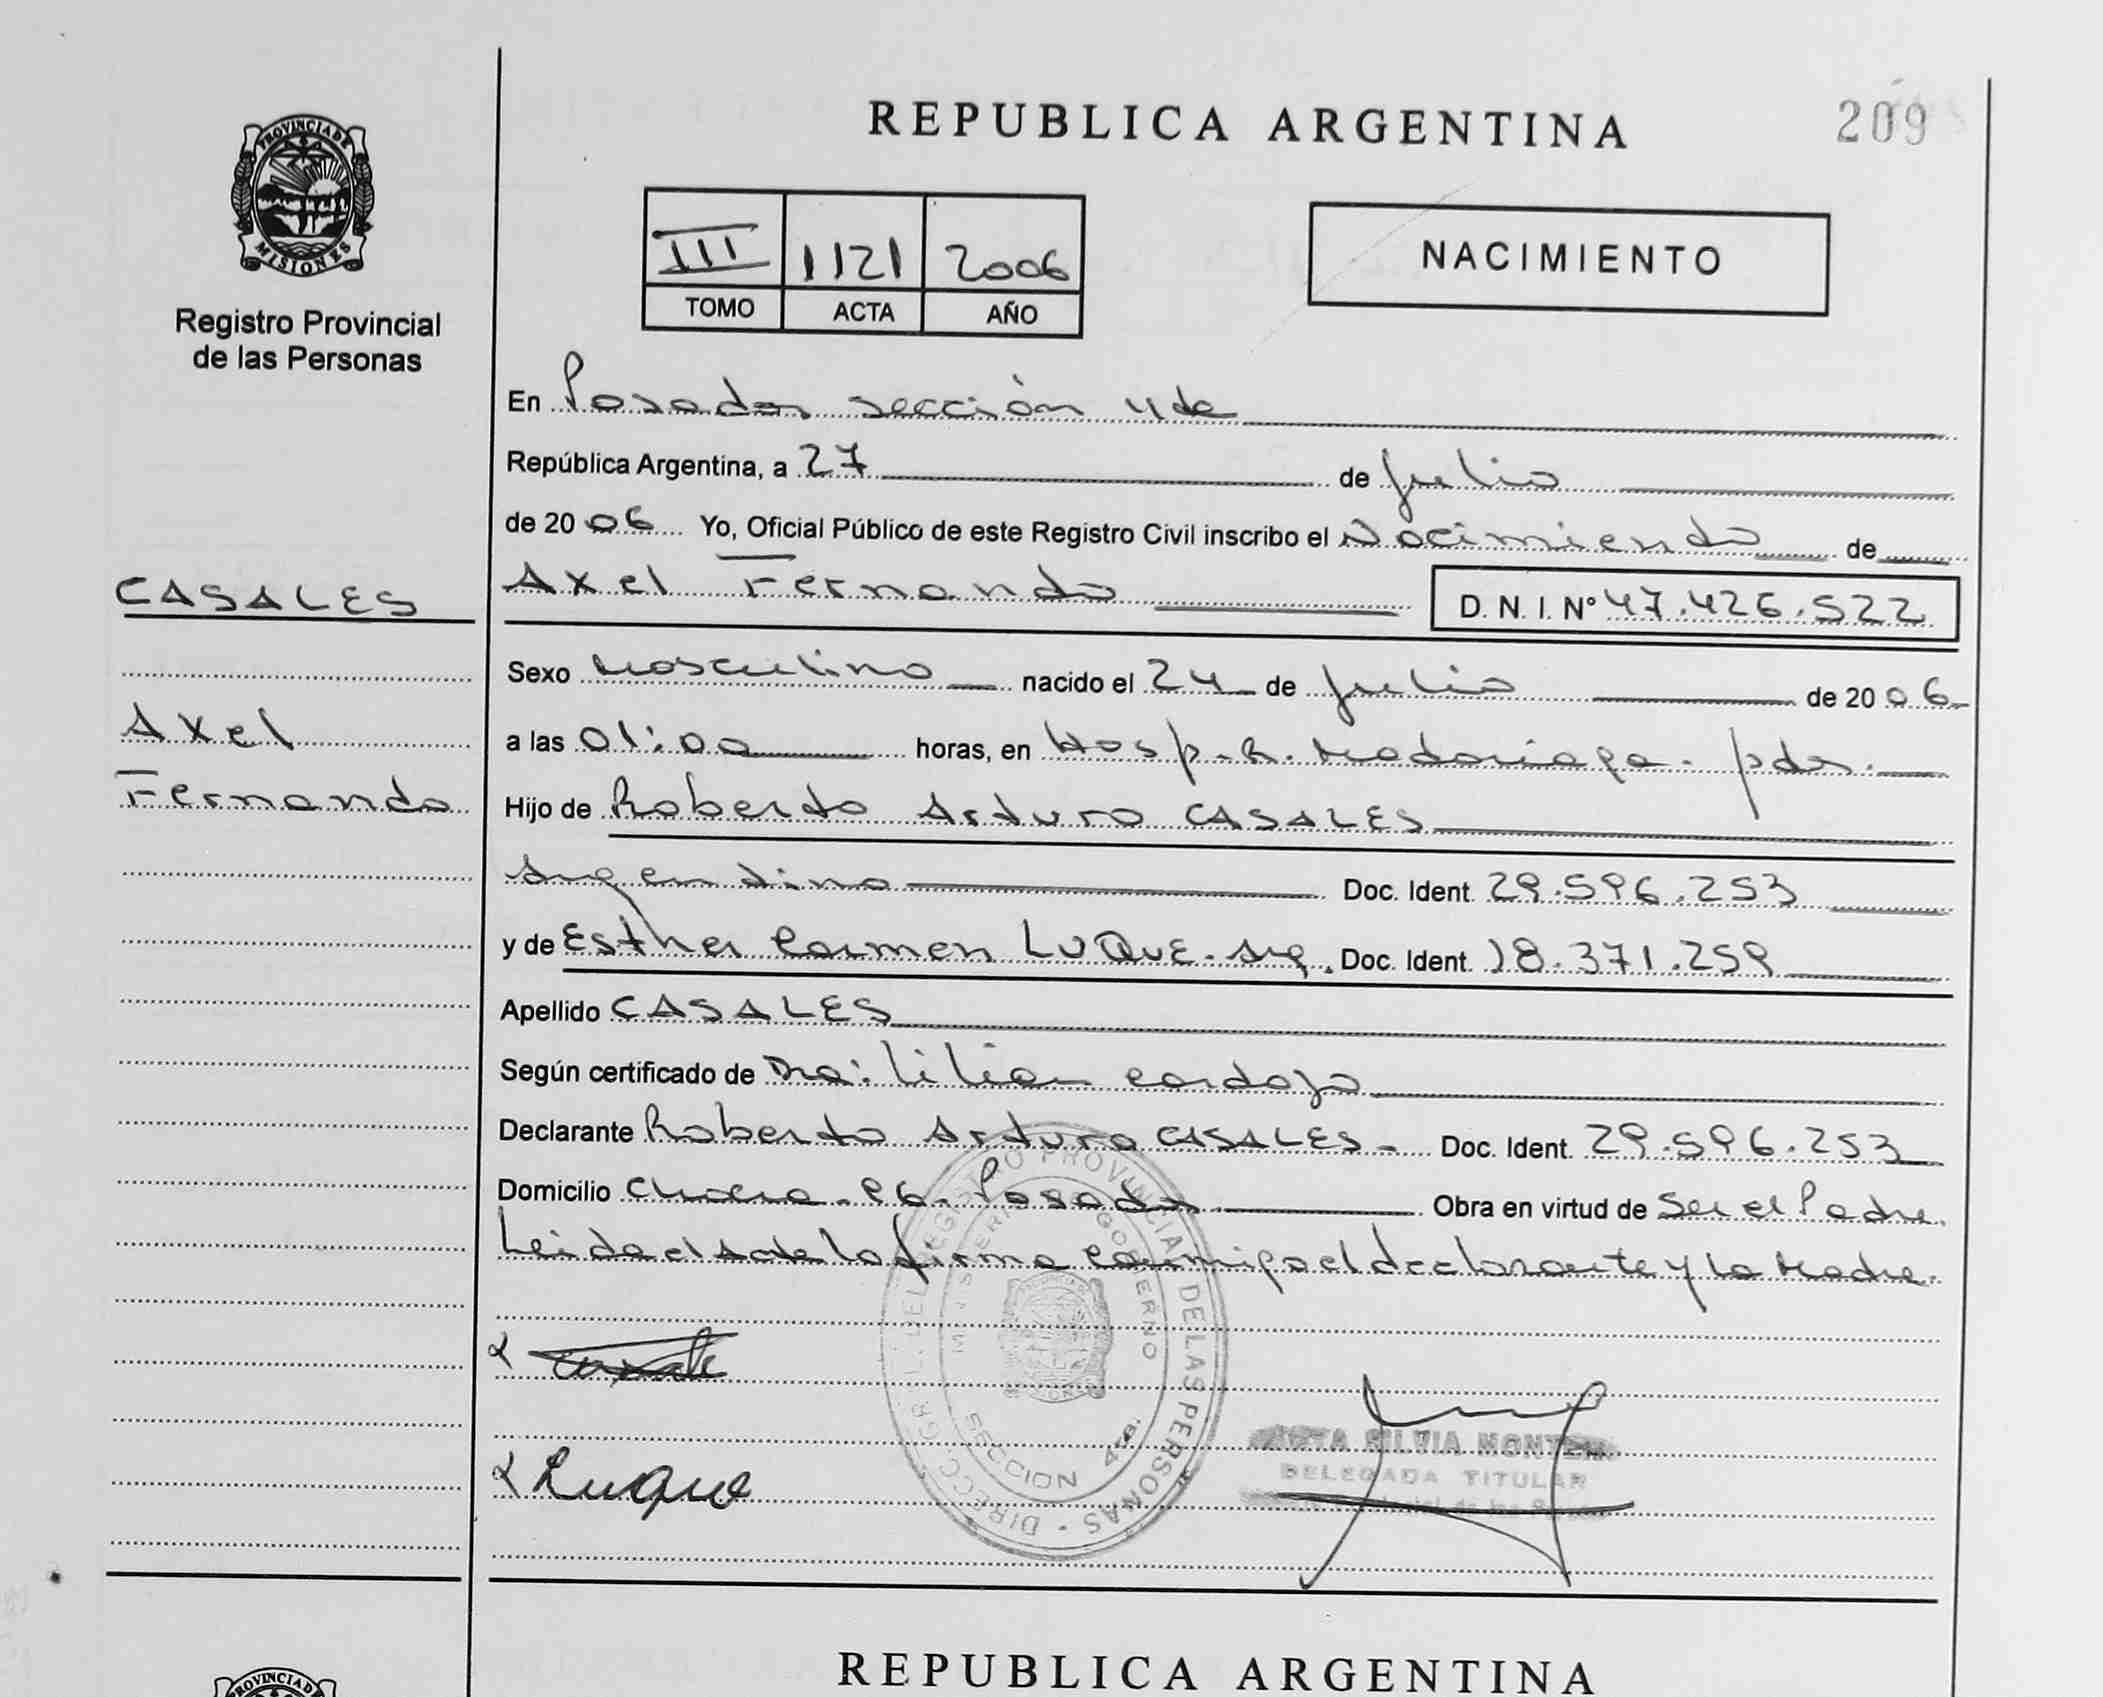 REPUBLICA ARGENTINA
209
PROVINCIA DE
MISIONES
Registro Provincial
de las Personas
III 1121 2006
TOMO ACTA AÑO
NACIMIENTO
En Posadas sección 4ta
República Argentina, a 27 de Julio
de 2006 Yo, Oficial Público de este Registro Civil inscribo el Nacimiento de
CASALES
Axel Fernando D. N. I. Nº 47.426.522
Sexo Masculino nacido el 24 de Julio de 2006
Axel
a las 01:00 horas, en Hosp. R. Madariaga. pdas.
Fernando
Hijo de Roberto Arturo CASALES
Argentino Doc. Ident. 29.596.253
y de Esther Carmen LUQUE. Arg. Doc. Ident. 18.371.259
Apellido CASALES
Según certificado de Dra: Lilian Cardozo
Declarante Roberto Arturo CASALES Doc. Ident. 29.596.253
Domicilio Posadas Obra en virtud de Ser el Padre.
Leida el Acta la firma conmigo el declarante y la Madre.
DIRECC. GRAL. DEL REGISTRO PROVINCIAL DE LAS PERSONAS
MINISTERIO GOBIERNO
SECCION 4ta.
Luque
SILVIA
DELEGADA TITULAR
REPUBLICA ARGENTINA
PROVINCIA DE